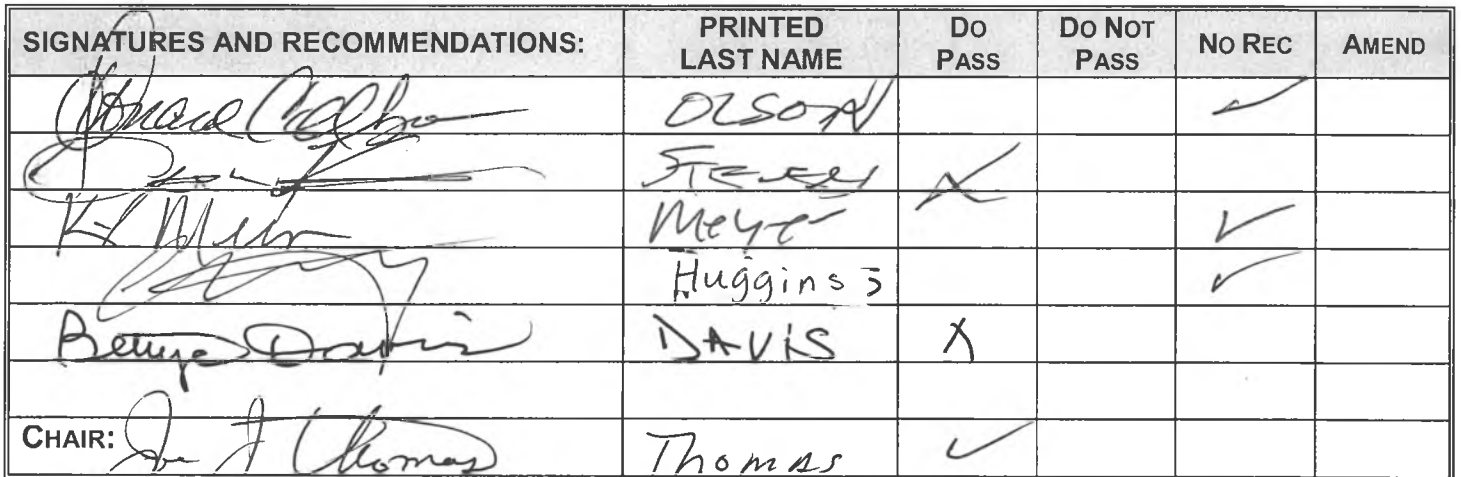 SIGNATURES AND RECOMMENDATIONS: PRINTED LAST NAME DO PASS DO NOT PASS NO REC AMEND
OLSON ✓
STEVENS X
Meyer ✓
Huggins ✓
Bettye Davis DAVIS X
CHAIR: Joe J Thomas Thomas ✓